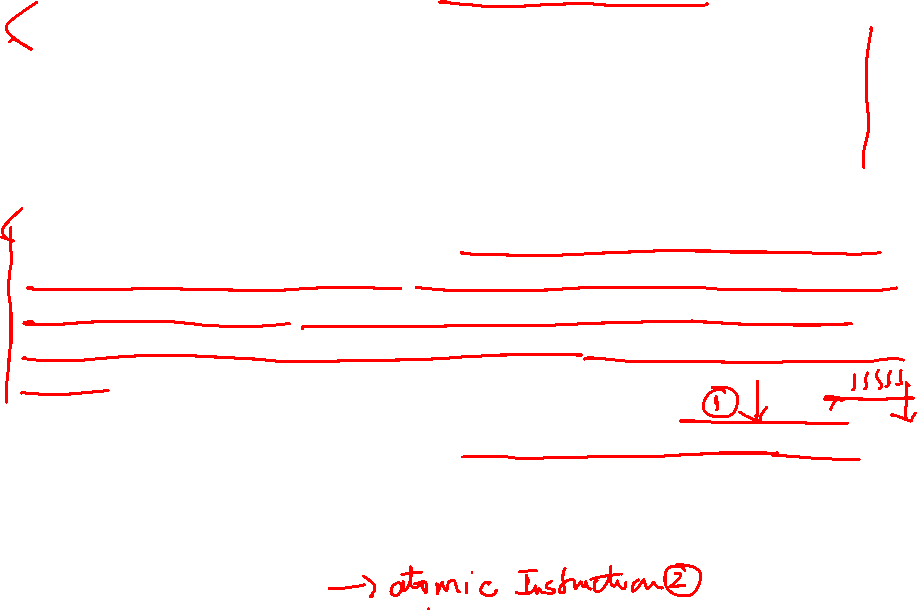 ①
→ atomic Instruction ②